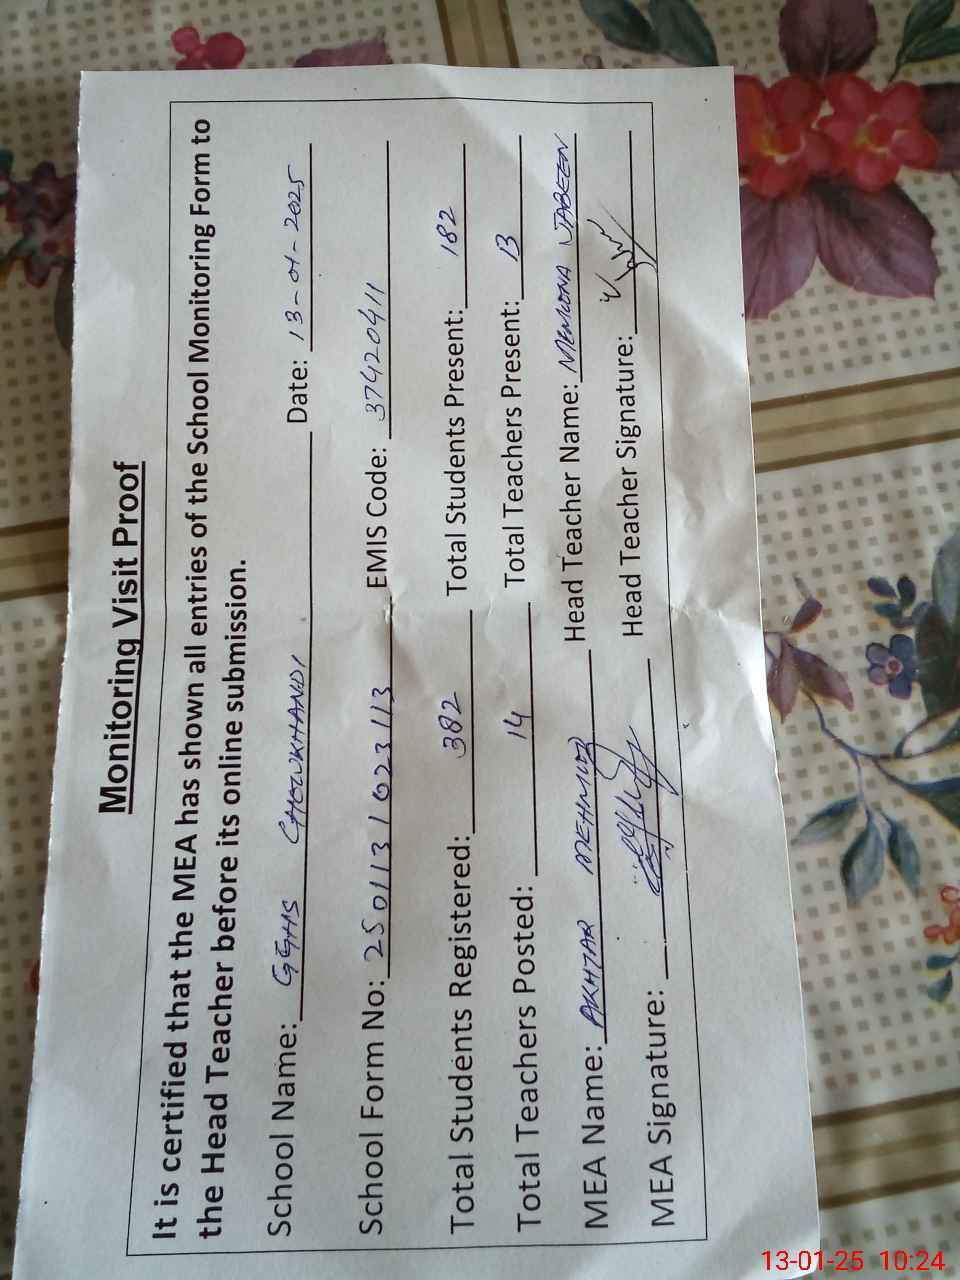 Monitoring Visit Proof
It is certified that the MEA has shown all entries of the School Monitoring Form to
the Head Teacher before its online submission.
School Name: GGHS CHOWKHANDI Date: 13-01-2025
School Form No: 2501131023113 EMIS Code: 37420411
Total Students Registered: 382 Total Students Present: 182
Total Teachers Posted: 14 Total Teachers Present: 13
MEA Name: AKHTAR MEHMOOD Head Teacher Name: MEMONA JABEEN
MEA Signature: Head Teacher Signature:
13-01-25 10:24